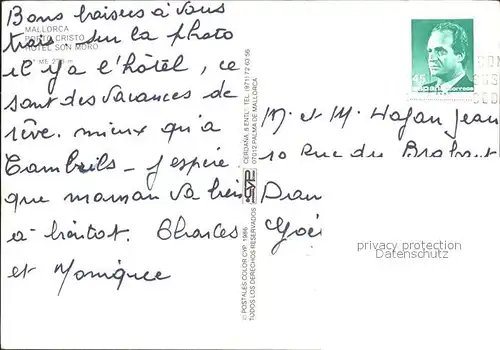 Bons baisers à vous
MALLORCA
PORTO CRISTO
HOTEL SON MORO
trois. sur la photo
il y a l'hôtel, ce
sont des vacances de
rêve. mieux qu'à
Cambrils - j'espère
que maman va bien
à bientot. Charles
et Monique
© POSTALES COLOR CYP, 1986
TODOS LOS DERECHOS RESERVADOS
CYP
CERDANA, 8 ENTL. TEL. (971) 72 63 56
07012 PALMA DE MALLORCA
45
correos
M. et M. Hagan Jean
10 Rue du Brabant
privacy protection
Datenschutz